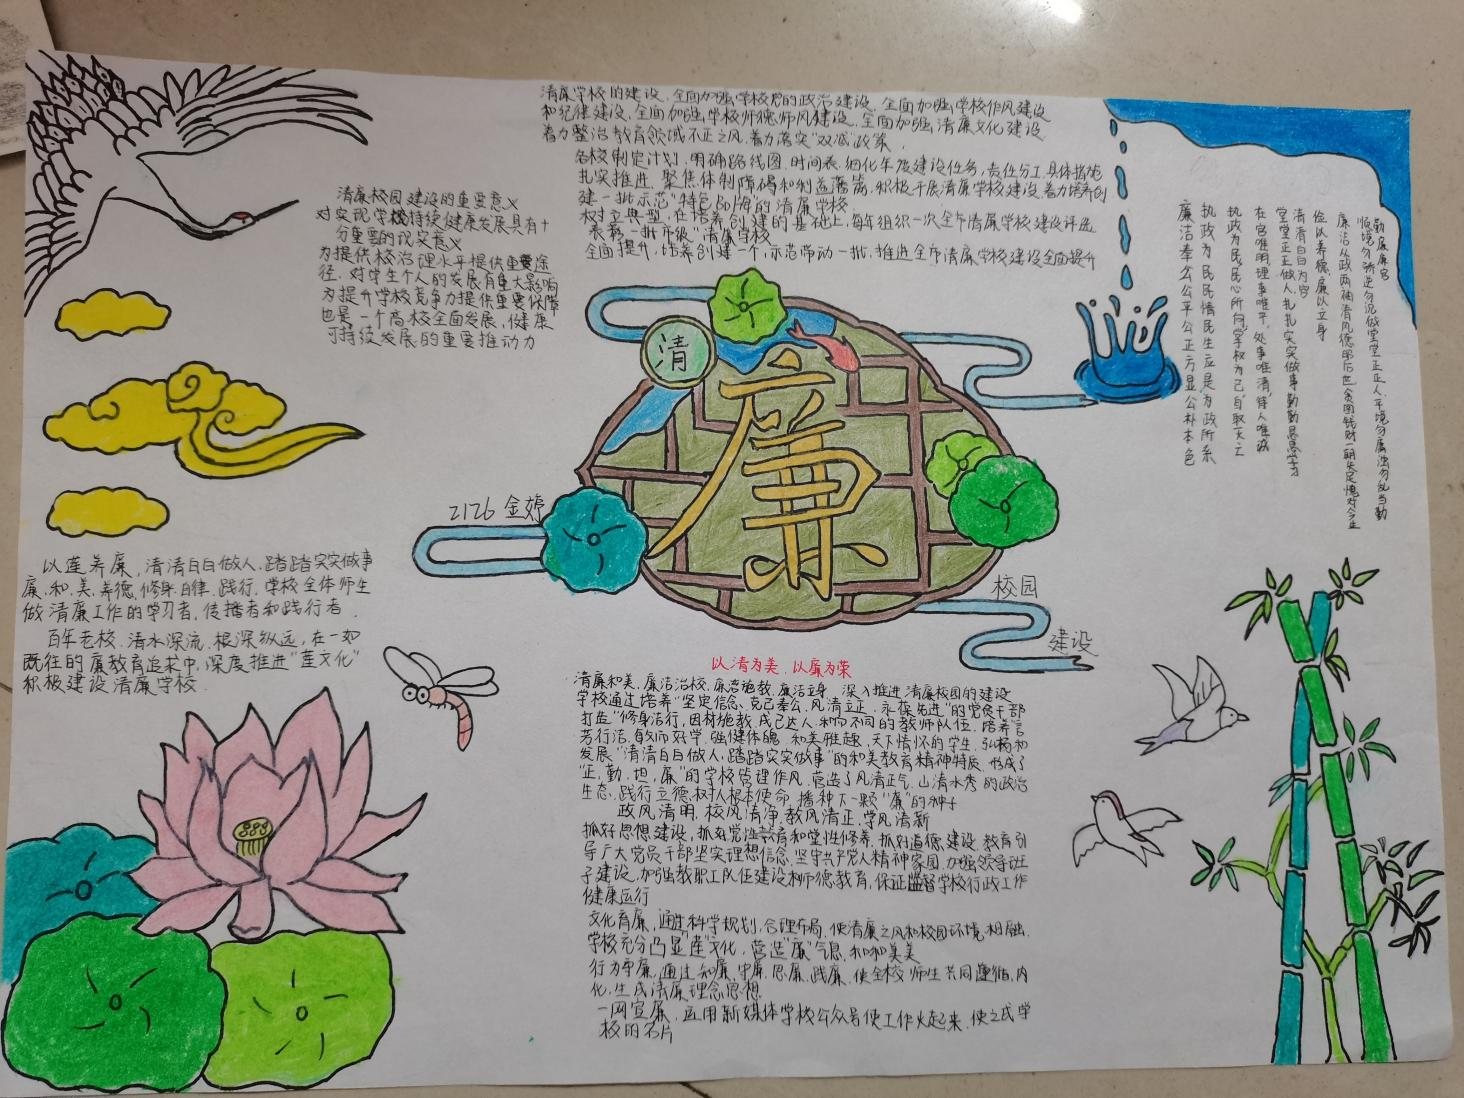 清廉学校的建设,全面加强学校党的政治建设,全面加强学校作风建设
和纪律建设,全面加强学校师德师风建设,全面加强清廉文化建设
着力整治教育领域不正之风,着力落实"双减"政策.
各校制定计划,明确路线图,时间表,细化年度建设任务,责任分工,具体措施
扎实推进,聚焦体制障碍和制造落笔,积极开展清廉学校建设,着力培养创
建一批示范"特色品牌的清廉学校
树立典型,在培养创建的基础上,每年组织一次全市清廉学校建设评选
表彰一批市级"清廉学校
全面提升,培养创建一个,示范带动一批,推进全市清廉学校建设全面提升
清廉校园建设的重要意义
对实现学校持续健康发展具有十
分重要的现实意义
为提供校治理水平提供重要途
径,对学生个人的发展有重大影响
为提升学校竞争力提供重要保障
也是一个高校全面发展,健康
可持续发展的重要推动力
勤廉廉官
顺境勿骄逆勿泥做堂堂正正人,平境勿庸浊勿乱当勤
廉洁从政两袖清风德昭后世,贪图钱财一朝失足愧对今生
俭以养德,廉以立身
清清白白为官
堂堂正正做人,扎扎实实做事勤勤恳恳学习
在官唯明,理事唯平,处事唯清,待人唯诚
执政为民民心所向,学权为己自取灭亡
执政为民民情民生应是为政所系
廉洁奉公公平公正方显公朴本色
清
廉
2126 金婷
校园
建设
以莲养廉,清清白白做人,踏踏实实做事
廉,和,美,养德,修身,自律,践行,学校全体师生
做清廉工作的学习者,传播者和践行者.
百年老校,清水深流,根深纵远,在一如
既往的廉教育追求中,深度推进"莲文化"
积极建设清廉学校.
以清为美,以廉为荣
清廉和美,廉洁治校,廉洁施教,廉洁立身 深入推进清廉校园的建设
学校通过培养"坚定信念,克己奉公,风清立正,永葆先进"的党员干部
打造"修身洁行,因材施教,成己达人,和而不同的教师队伍,培养"言
芳行洁,敏而好学,强健体魄,和美雅趣,天下情怀的学生,弘扬和
发展"清清白白做人,踏踏实实做事"的和美教育精神特质,形成了
"正,勤,担,廉"的学校管理作风,营造了风清正气,山清水秀的政治
生态,践行立德树人根本使命,播种下一颗"廉"的种子
政风清明,校风清净,教风清正,学风清新
抓好思想建设,抓好党性教育和党性修养,抓好道德建设,教育引
导广大党员干部坚实理想信念,坚守共产党人精神家园,加强领导班
子建设,加强教职工队伍建设和师德教育,保证监督学校行政工作
健康运行
文化育廉,通过科学规划,合理布局,使清廉之风和校园环境相融,
学校充分凸显"莲"文化,营造"廉"气息,和和美美
行为守廉,通过知廉,守廉,思廉,践廉,使全校师生共同遵循,内
化,生成清廉理念思想
一网宣廉,运用新媒体学校公众号使工作火起来,使之成学
校的名片